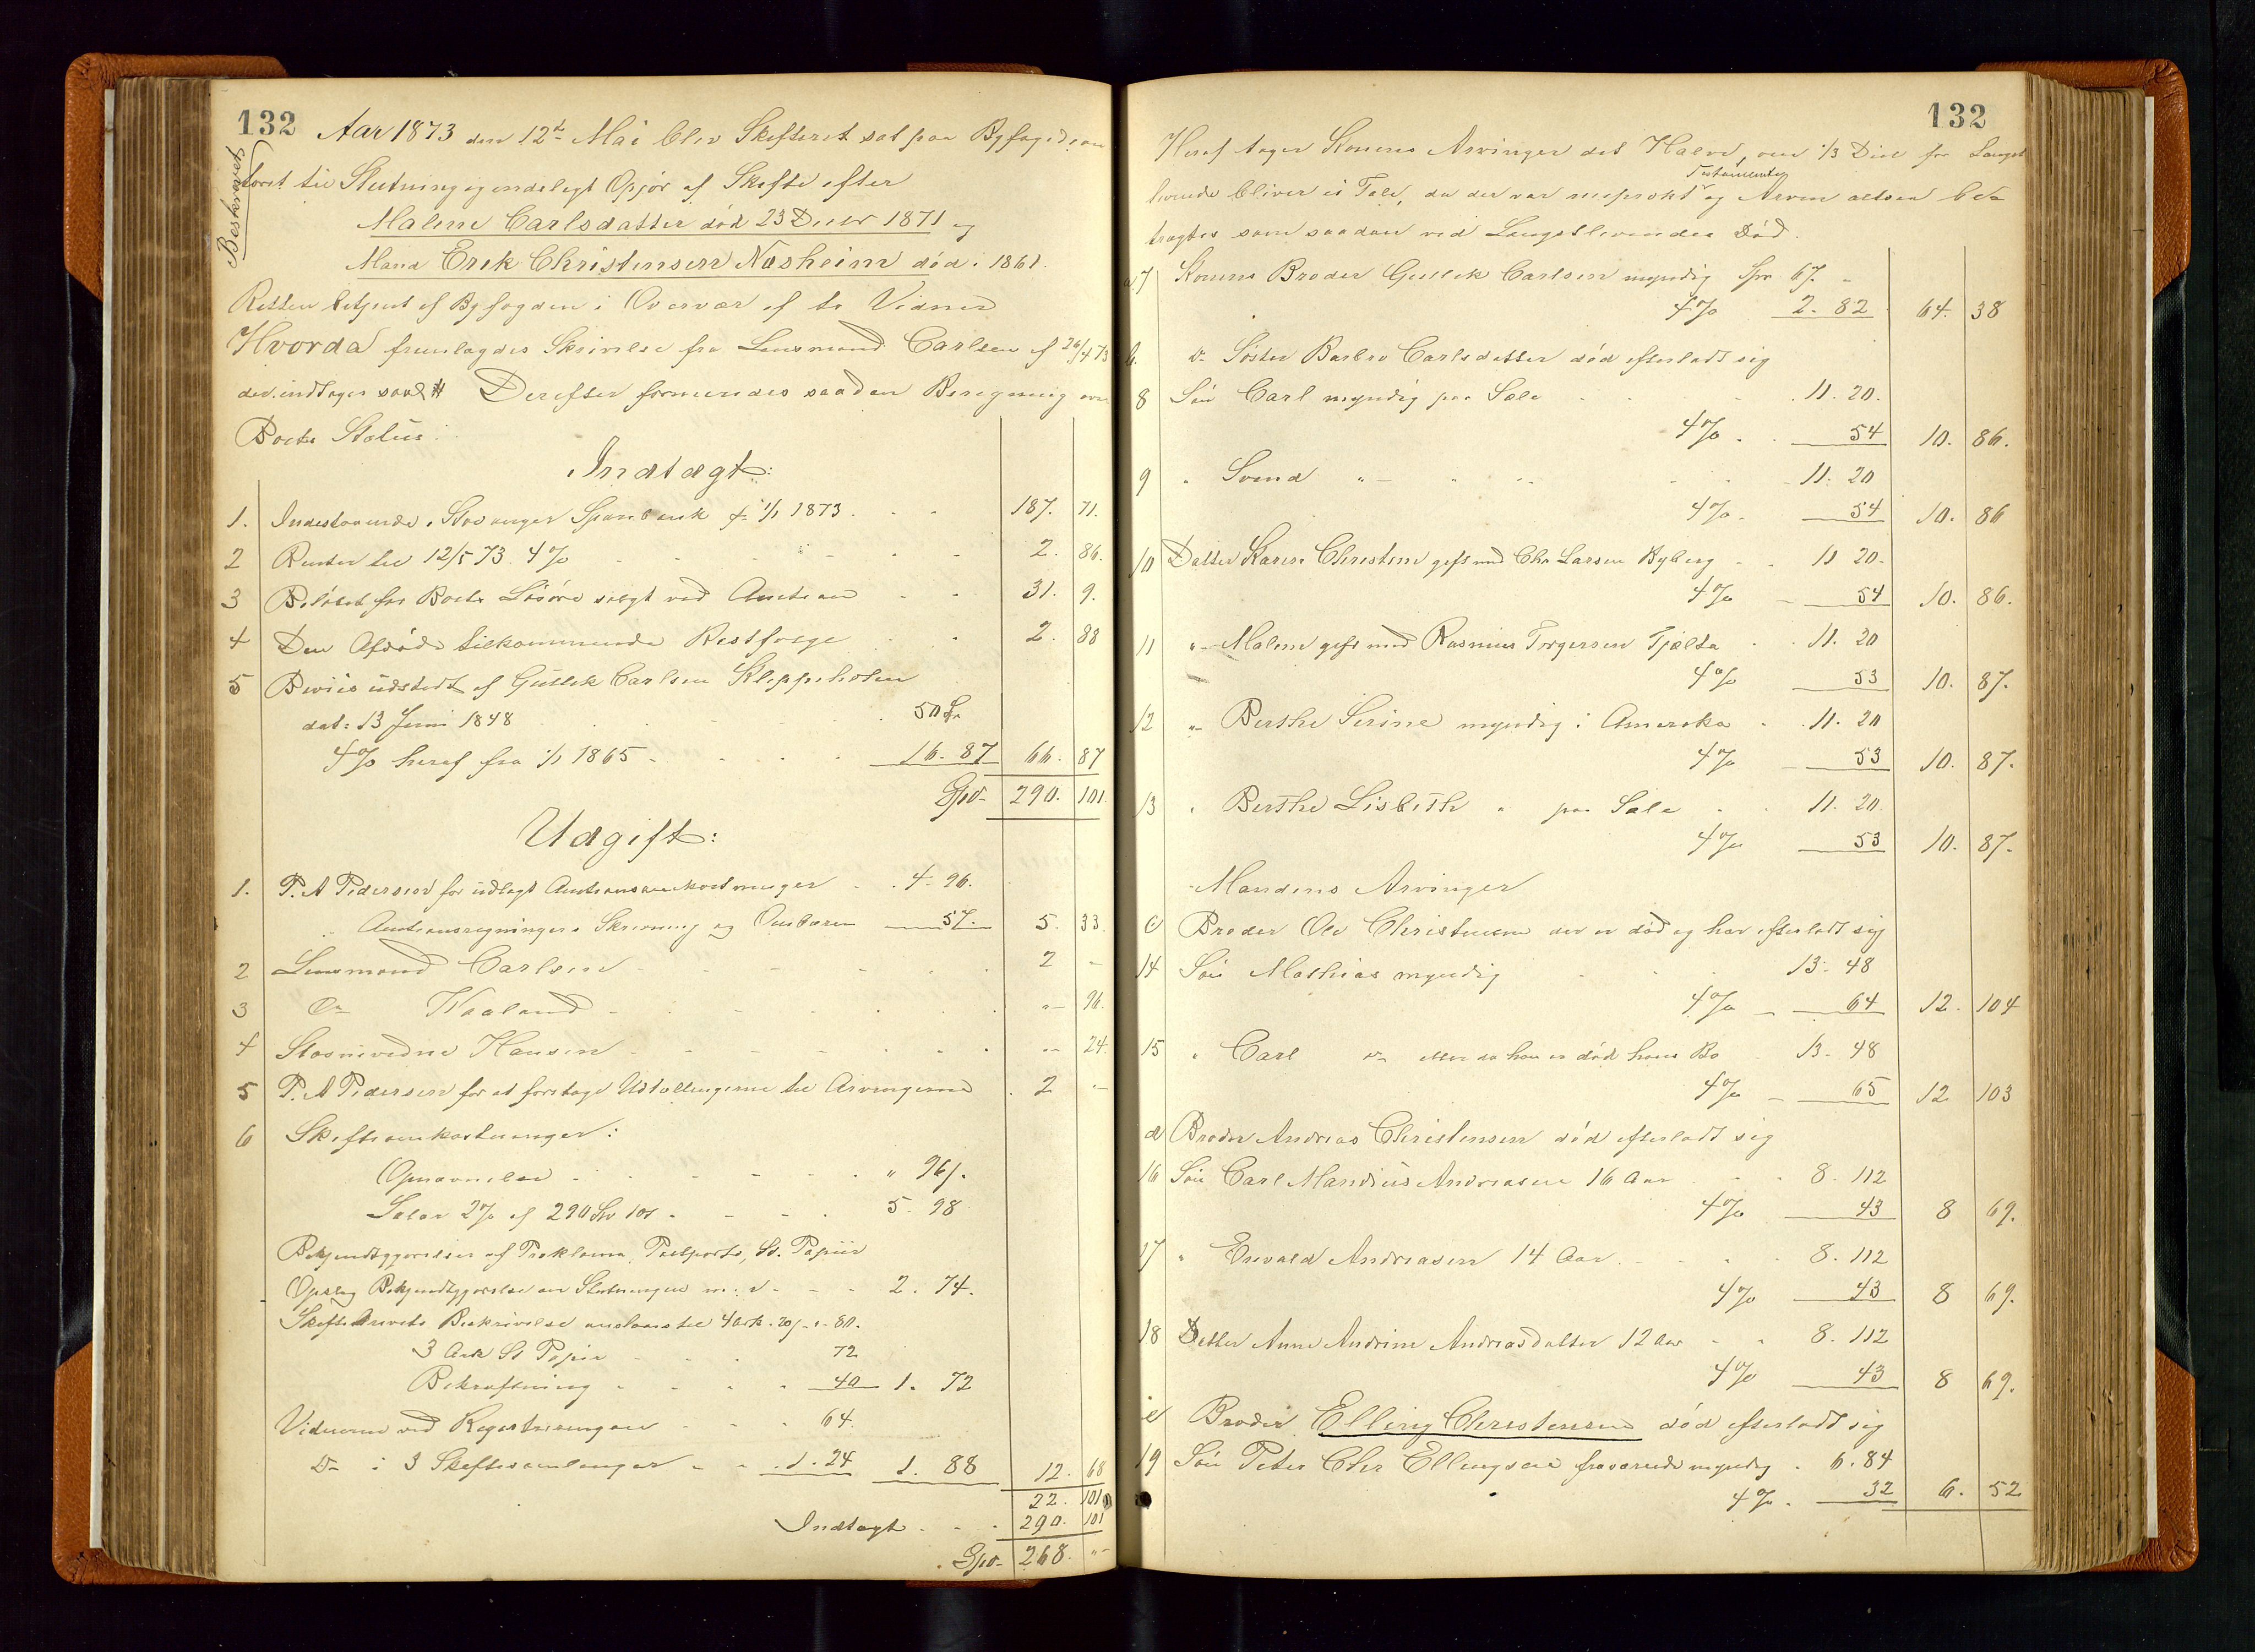 132
Aar 1873 den 12te Mai blev Skifteret sat paa Byfogedcon
toret til Slutning og endeligt Opjör af Skifte efter
Beskrevet
Malene Carlsdatter död 23 Decbr 1871 og
Mand Erik Christensen Næsheim död i 1861.
Retten betjent af Byfogden i Overvær af to Vidner
Hvorda fremlagdes Skrivelse fra Lensmand Carlsen af 26/4 73
der indtages saal. Derefter formeredes saadan Beregning over
Boets Status:
Indtægt:
1. Indestaaende i Stavanger Sparebank pr 1/1 1873 187. 71.
2 Renter til 12/5 73 4% 2. 86.
3 Belöbet for Boets Lösöre solgt ved Auction 31. 9.
4 Den Afdöde tilkommende Restfolge 2. 88
5 Beviis udstedt af Gullik Carlsen Kleppeholen
dat: 13 Juni 1848 50 Sp
4% heraf fra 1/1 1865 16. 87 66. 87
Spd 290. 101.
Udgift:
1. P. A Pedersen for udlagt Auctionsomkostninger 4. 96.
Auctionsregningers Skrivning og Ombæren 57. 5. 33.
2 Lensmand Carlsen 2 –
3 Do Waaland "– 96.
4 Stævnevidne Hansen "– 24.
5 P. A Pedersen for at foretage Udtællingerne til Arvingerne 2 –
6 Skifteomkostninger:
Opnævnelse " 96 s.
Salær 2% af 290 Sp 101 5. 98
Bekjendtgjörelser af Proklama, Postporto, St. Papiir
Opslag Bekjendtgjörelse om Slutningen m: v. 2. 74.
Skiftebrevets Beskrivelse anslaaes til 4 Ark. 20 s – 80.
3 Ark St Papir 72
Bekræftning 40 1. 72
Vidnerne ved Registreringen 64.
Do i 3 Skiftesamlinger 1. 24 1. 88 12. 68
22. 101
Indtægt 290. 101
Spd 268. "–
132
Heraf tager Konens Arvinger det Halve, om 1/3 Deel for Længst
levende bliver ei Tale, da der var reciprokt Testamente og Arven altsaa be=
tragtes som saadan ved Længstlevendes Död.
a 7 Konens Broder Gullik Carlsen myndig Spd 67. –
4% 2. 82 64. 38
b. Do Söster Barbro Carlsdatter död efterladt sig
8 Sön Carl myndig paa Sole 11. 20.
4% 54 10. 86.
9 " Svend "– 11. 20
4% 54 10. 86
10 Datter Karen Christine gift med Chr Larsen Byberg 11 20.
4% 54 10. 86.
11 "– Malene gift med Rasmus Torgersen Tjælta 11. 20
4% 53 10. 87.
12 "– Berthe Serine myndig i Amerika 11. 20
4% 53 10. 87.
13 " Berthe Lisbeth " paa Sole 11. 20.
4% 53 10. 87.
Mandens Arvinger
c Broder Ole Christensen der er död og har efterladt sig
14 Sön Mathias myndig 13. 48
4% 64 12. 104
15 " Carl do eller da han er död hans Bo 13. 48
4% 65 12 103
d Broder Andreas Christensen död efterladt sig
16 Sön Carl Mandius Andreasen 16 Aar 8. 112
4% 43 8 69.
17 " Enevald Andreasen 14 Aar 8. 112
4% 43 8 69.
18 Datter Anne Andrine Andreasdatter 12 Aar 8. 112
4% 43 8 69.
e Broder Elling Christensen död efterladt sig
19 Sön Peter Chr Ellingsen fraværende myndig 6. 84
4% 32 6. 52